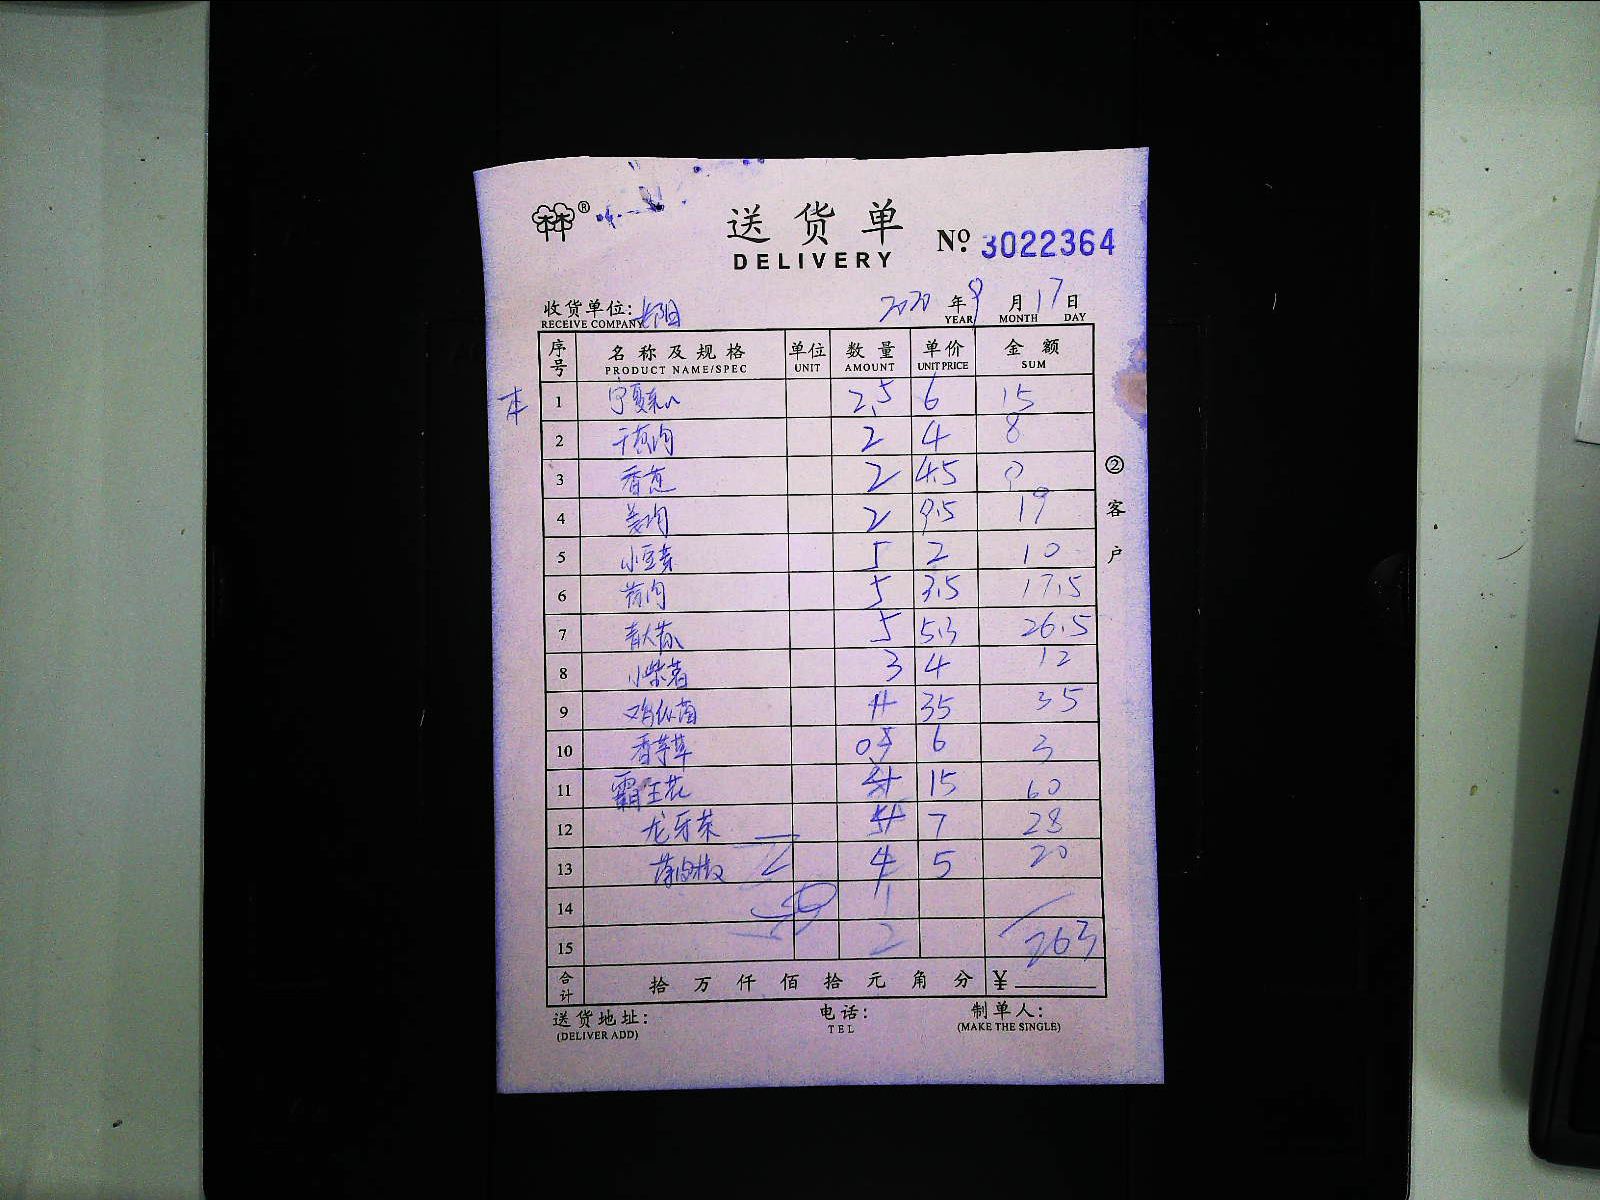 送货单
DELIVERY
№ 3022364
收货单位:
RECEIVE COMPANY
2020 年 9 月 17 日
YEAR MONTH DAY
序号 名称及规格 单位 数量 单价 金额
PRODUCT NAME/SPEC UNIT AMOUNT UNIT PRICE SUM
本
1 宁夏菜心 2.5 6 15
2 2 4 8
3 香葱 2 4.5 9
4 姜肉 2 9.5 19
5 小豆芽 5 2 10
6 5 3.5 17.5
7 5 5.3 26.5
8 小紫薯 3 4 12
9 35 35
10 香芋草 0.5 6 3
11 霸王花 4 15 60
12 龙牙菜 4 7 28
13 4 5 20
14
15 263
合计 拾 万 仟 佰 拾 元 角 分 ¥
②客户
送货地址: 电话: 制单人:
(DELIVER ADD) TEL (MAKE THE SINGLE)